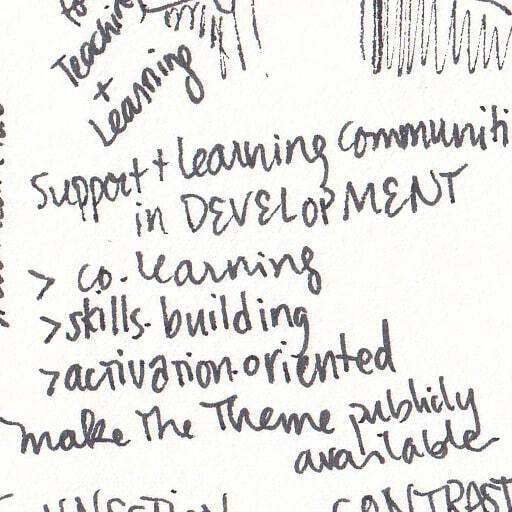 for
Teaching
+
Learning
Support + learning communiti
in DEVELOPMENT
> co.learning
> skills.building
> activation.oriented
make The Theme publicly
available
CONTRAST